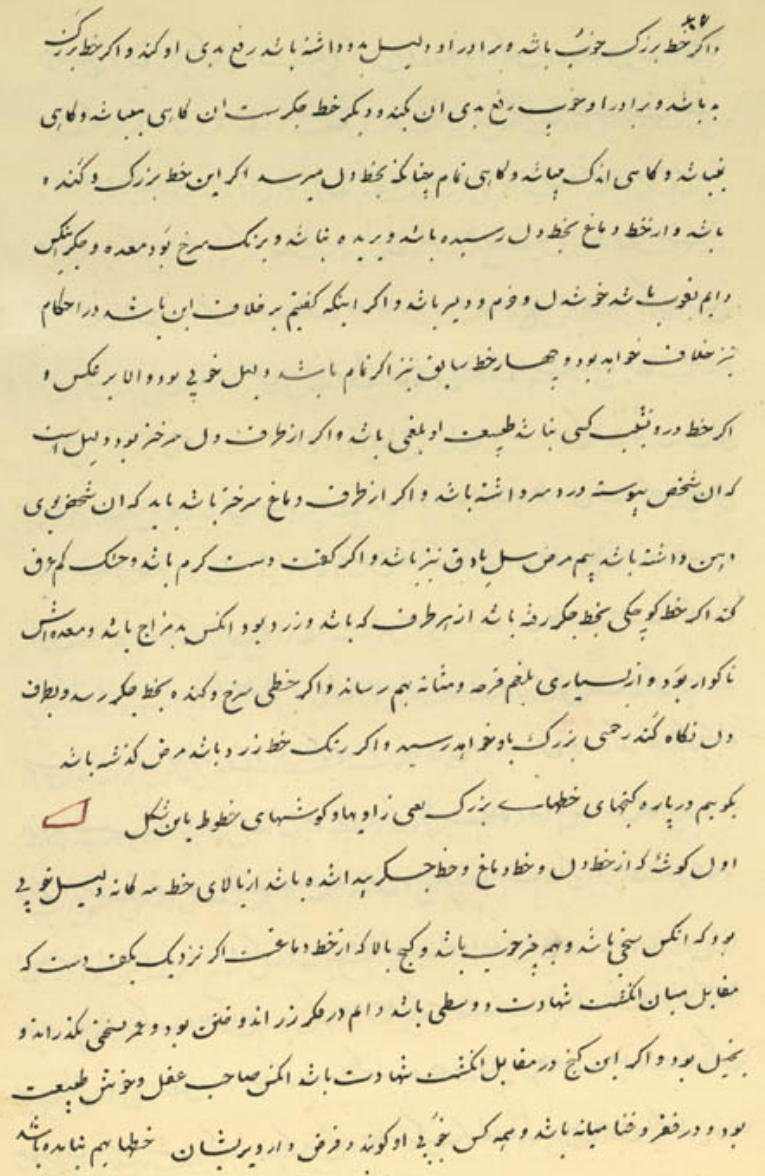 و اگر خط بزرگ خوب باشد و برادر او دلیل بد داشته باشد رفع بدی او کند و اگر خط بزرگ
بد باشد و برادر او خوب رفع بدی ان کند و دیگر خط جگرست ان کاهی میباشد و کاهی
نمیباشد و کاهی اندک میباشد و کاهی تمام چنانکه بخط دل میرسد اگر این خط بزرگ و کنده
باشد و از خط دماغ بخط دل رسیده باشد و بریده نباشد و برنک سرخ بود معده و جگر انکس
دایم بقوت باشد خوشدل و خرم و دلیر باشد و اگر اینکه کفتیم بر خلاف این باشد در احکام
نیز خلاف خواهد بود و چهار خط سابق نیز اگر تمام باشد دلیل خوبی بود و الا بر عکس و
اگر خط در کسی نباشد طبیعت او بلغمی باشد و اگر از طرف دل سرختر بود دلیل است
که ان شخص پیوسته درد سر داشته باشد و اگر از طرف دماغ سرختر باشد باید که ان شخص بوی
دهن داشته باشد بیم مرض سل یا دق نیز باشد و اگر کف دست کرم باشد و خشک کم عرق
کند اگر خط کوچکی بخط جگر رفته باشد از هر طرف که باشد و زرد بود انکس بد مزاج باشد و معده اش
ناکوار بود و از بسیاری بلغم قرحه و مثانه بهم رساند و اگر خطی سرخ و کنده بخط جگر رسد و بطرف
دل نکاه کند زحمی بزرک باو خواهد رسید و اگر رنک خط زرد باشد مرض کذشته باشد
بکویم درباره کنجهای خطهاے بزرک یعنی زاویها و کوشهای خطوط باین شکل
اول کوشهٔ که از خط دل و خط دماغ و خط جگر پیدا شده باشد از بالای خط سه کانه دلیل خوبی
بود که انکس سخی باشد و همه چیز خوب باشد و کنج بالا که از خط دماغست اگر نزدیک بکف دست که
مقابل میان انکشت شهادت و وسطی باشد دایم در فکر زر اندوختن بود و عمر بسختی بکذراند و
بخیل بود و اگر این کنج در مقابل انکشت شهادت باشد انکس صاحب عقل و خوش طبیعت
بود و در فقر و غنا میانه باشد و همه کس خوبی او کویند و قرض دار و پریشان خطها بهم نیامده باشد